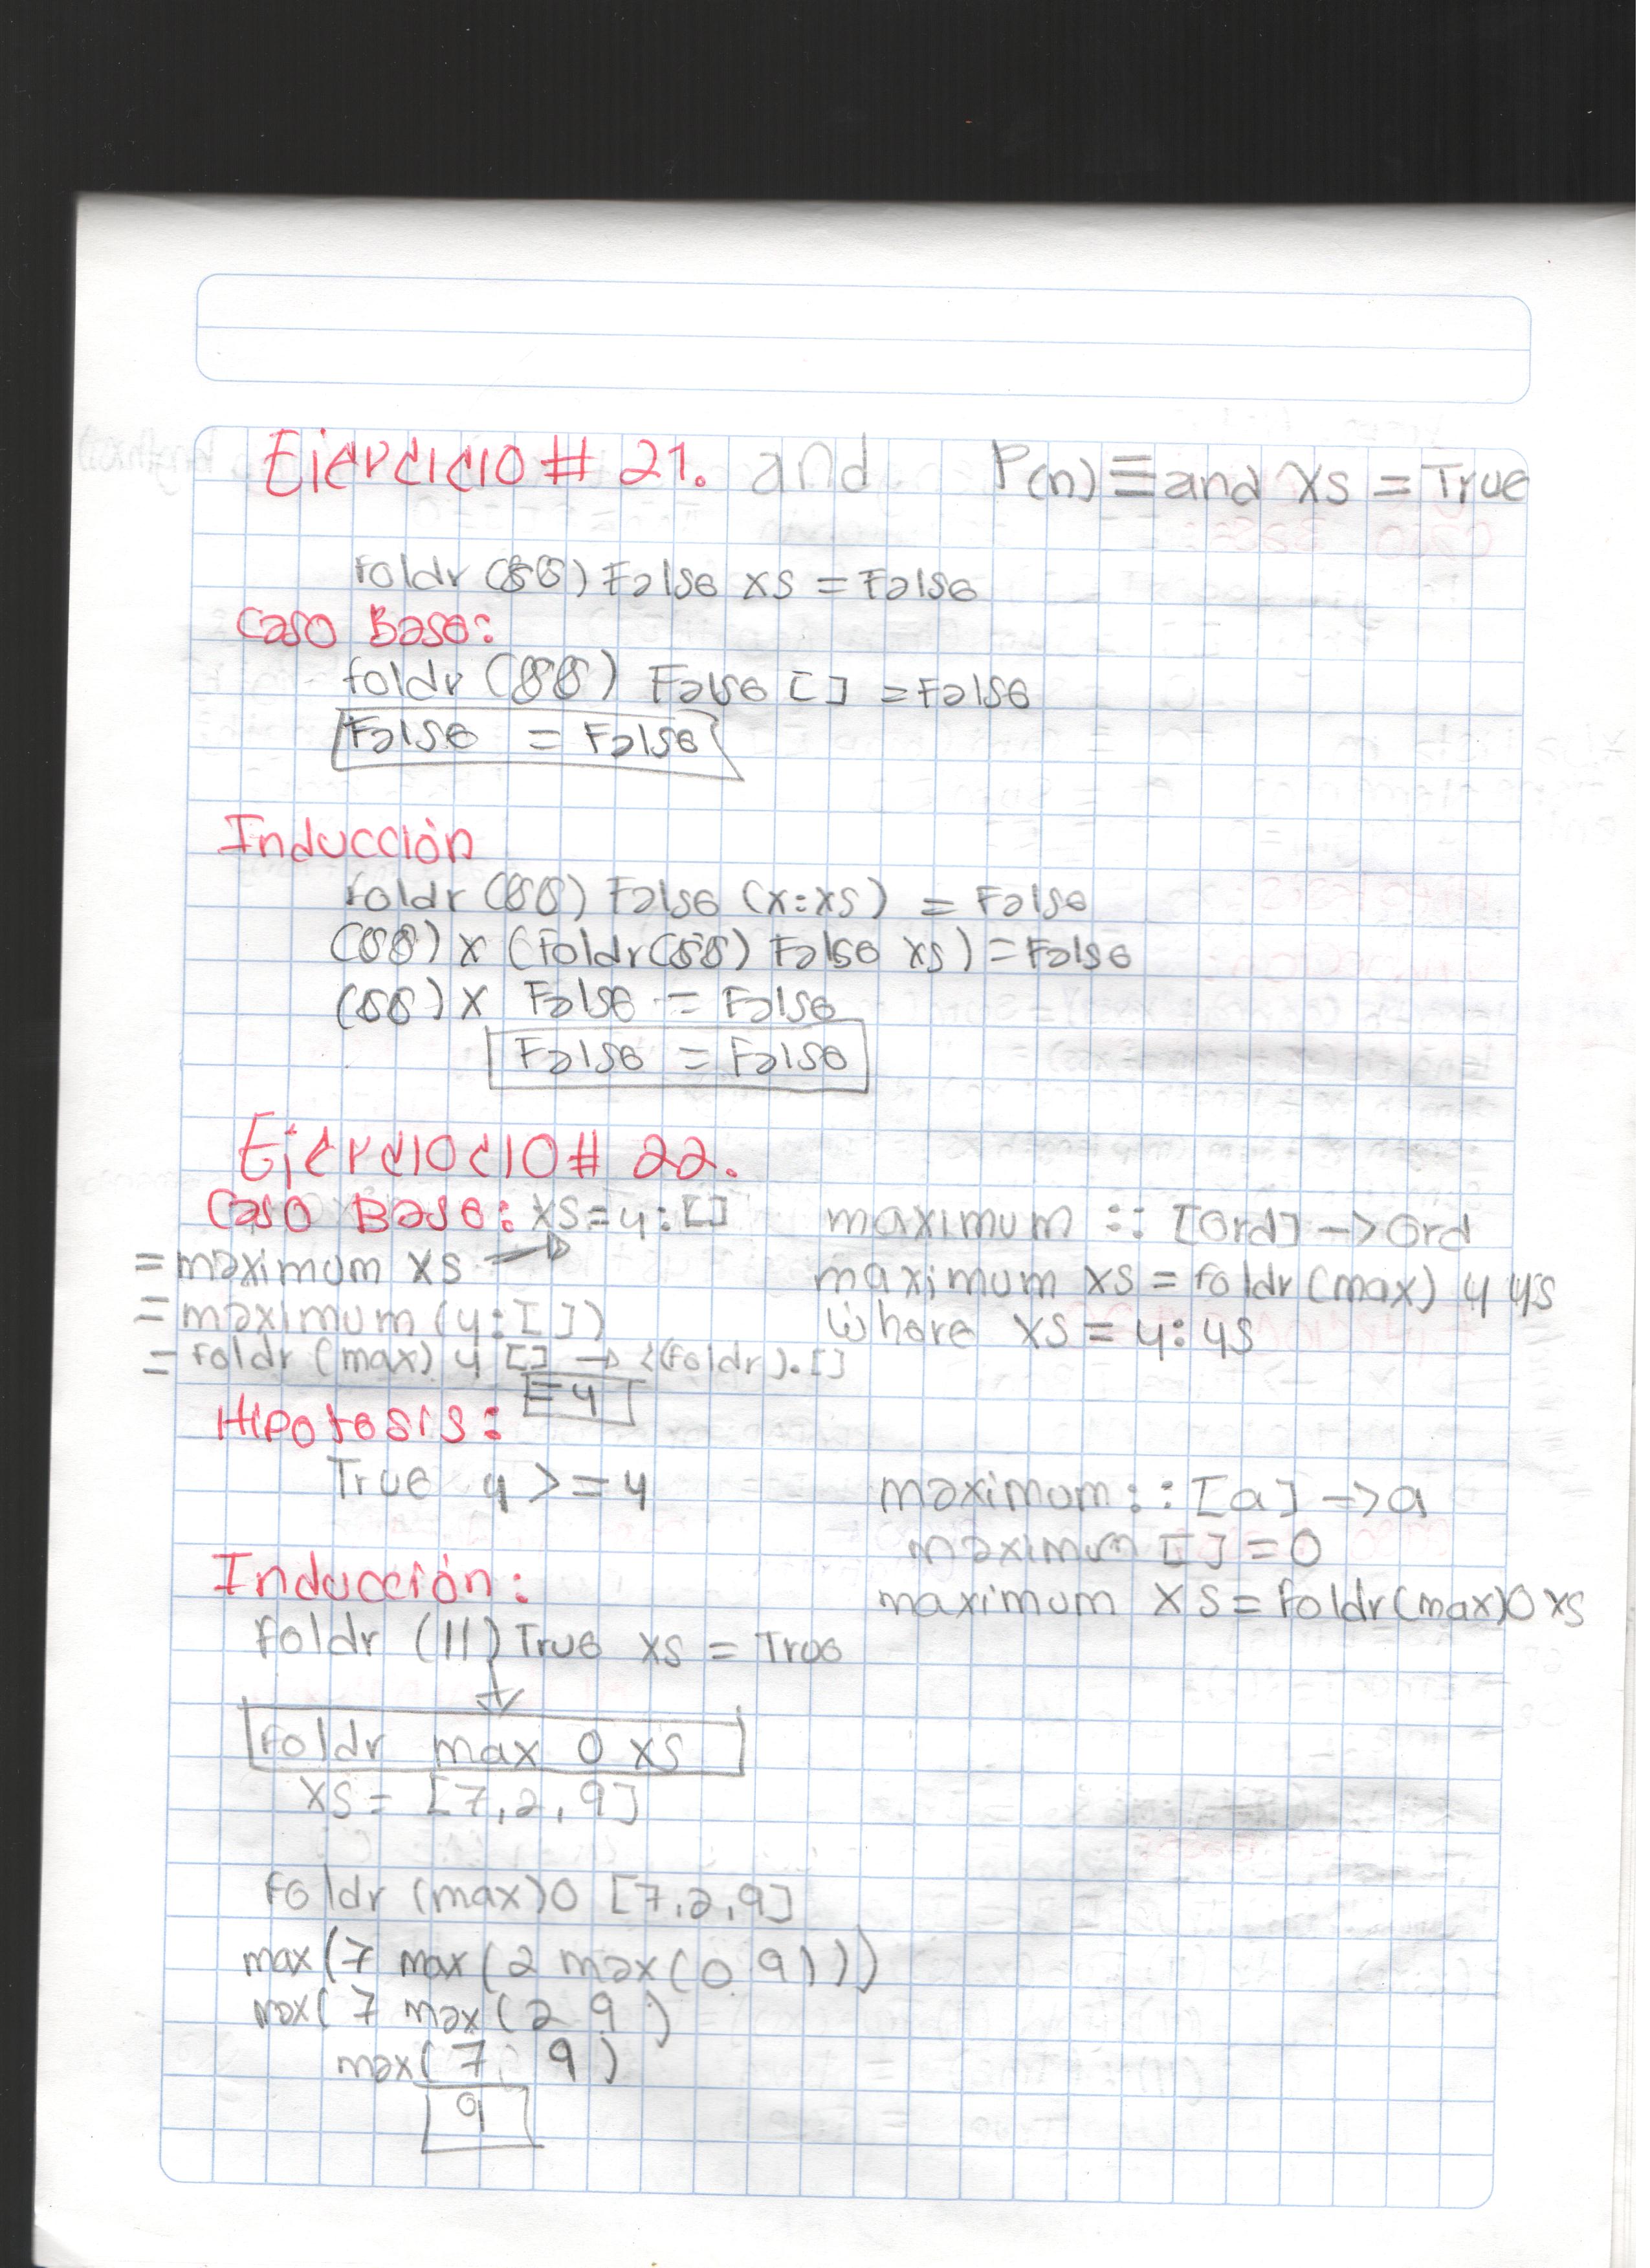 Ejercicio # 21. and P(n) ≡ and xs = True
foldr (&&) False xs = False
Caso Base:
foldr (&&) False [] = False
False = False
Inducción
foldr (&&) False (x:xs) = False
(&&) x (foldr(&&) False xs) = False
(&&) x False = False
False = False
Ejerciocio # 22.
Caso Base: xs = y:[]
= maximum xs →
= maximum (y:[])
= foldr (max) y [] → <(foldr).[]
= y
maximum :: [Ord] -> Ord
maximum xs = foldr (max) y ys
where xs = y:ys
Hipotesis:
True y >= y
maximum :: [a] -> a
maximum [] = 0
maximum xs = foldr(max) 0 xs
Inducción:
foldr (||) True xs = True
↓
foldr max 0 xs
xs = [7,2,9]
foldr (max) 0 [7,2,9]
max(7 max(2 max(0 9)))
max( 7 max(2 9)
max( 7 9)
9